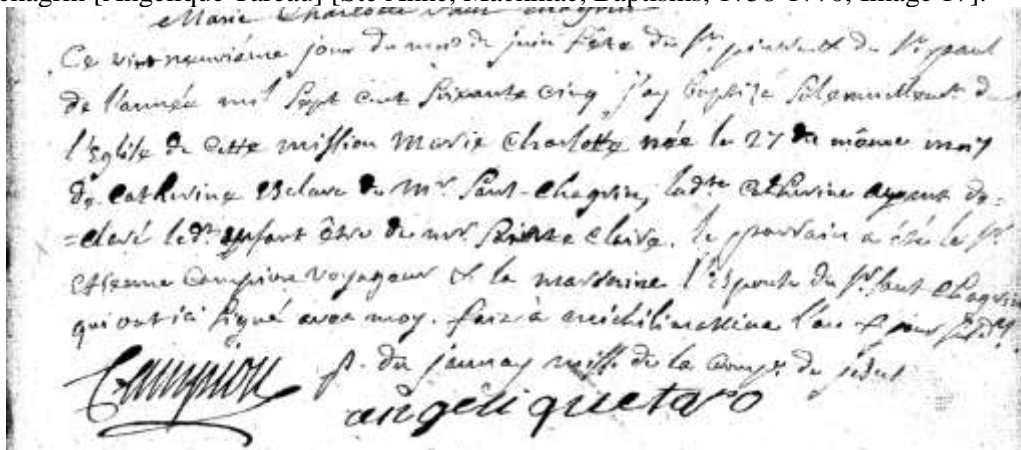 chagrin [Angelique Tareau] [Ste Anne, Mackinac, Baptisms, 1738-1776, Image 17].
Marie Charlotte
Ce vint neuvième jour du mois de juin fête de St. pierre et de St. paul
de l'année mil Sept cent Soixante cinq j'ay baptizé Solemnellement d
l'Eglise de Cette mission Marie Charlotte née le 27 du même moy
de Catherine Esclave de Mr. Sant-Chagrin, ladte Catherine ayant dé=
=claré led. Enfant être de mr. Sainte Claire. le parrain a été le Sr.
Etienne Campion voyageur & la marraine l'Epouse du Sr. Sant Chagrin
qui ont ici Signé avec moy. fait à michilimakina l'an & jour
Campion p. du jaunay miss. de la comp. de jesus
angeliquetaro